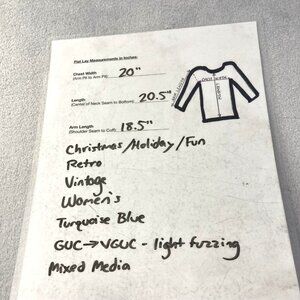 Flat Lay Measurements in Inches:
Chest Width 20"
(Arm Pit to Arm Pit)
Length 20.5"
(Center of Neck Seam to Bottom)
Arm Length 18.5"
(Shoulder Seam to Cuff)
Christmas/Holiday/Fun
Retro
Vintage
Women's
Turquoise Blue
GUC → VGUC - light fuzzing
Mixed Media
ARM LENGTH
CHEST WIDTH
LENGTH